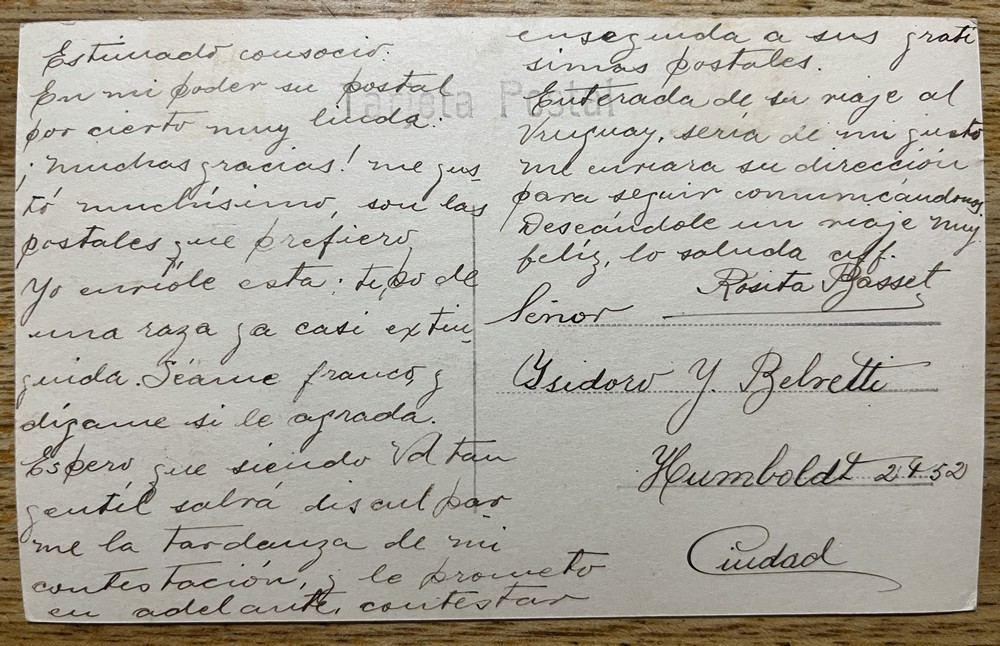 Estimado consocio.
En mi poder su postal
por cierto muy linda.
¡Muchas gracias! me gus-
tó muchísimo, son las
postales que prefiero,
Yo envíole esta: tipo de
una raza ya casi extin-
guida. Séame franco, y
dígame si le agrada.
Espero que siendo Vd tan
gentil sabrá disculpar-
me la tardanza de mi
contestación, y le prometo
en adelante, contestar
enseguida a sus grati
simas postales.
Tarjeta Postal
Enterada de su viaje al
Uruguay, sería de mi gusto
me enviara su dirección
para seguir comunicándonos.
Deseándole un viaje muy
feliz, lo saluda aff.
Rosita Basset
Señor
Ysidoro Y. Belvetti
Humboldt 2452
Ciudad